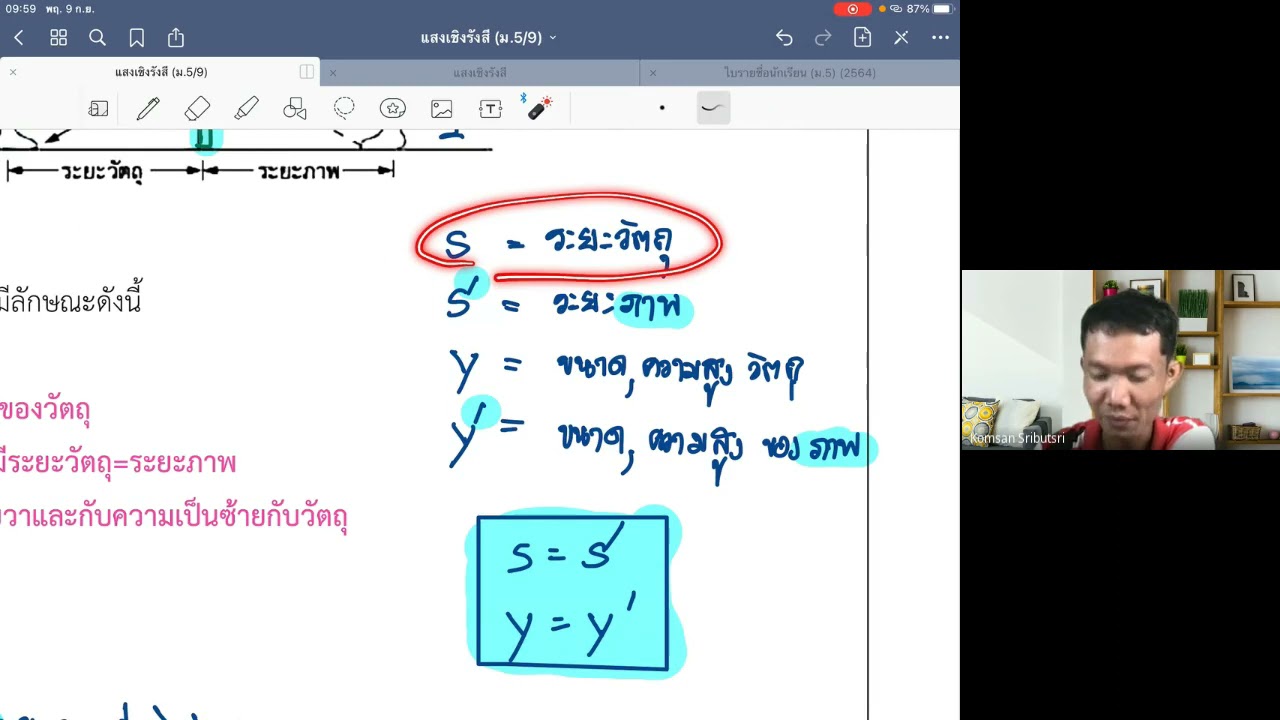 09:59 พฤ. 9 ก.ย.
87%
แสงเชิงรังสี (ม.5/9)
แสงเชิงรังสี (ม.5/9)
แสงเชิงรังสี
ใบรายชื่อนักเรียน (ม.5) (2564)
ระยะวัตถุ
ระยะภาพ
S = ระยะวัตถุ
S' = ระยะภาพ
มีลักษณะดังนี้
y = ขนาด, ความสูง วัตถุ
ของวัตถุ
y' = ขนาด, ความสูง ของ ภาพ
มีระยะวัตถุ=ระยะภาพ
วาและกับความเป็นซ้ายกับวัตถุ
S = S'
y = y'
Komsan Sributsri